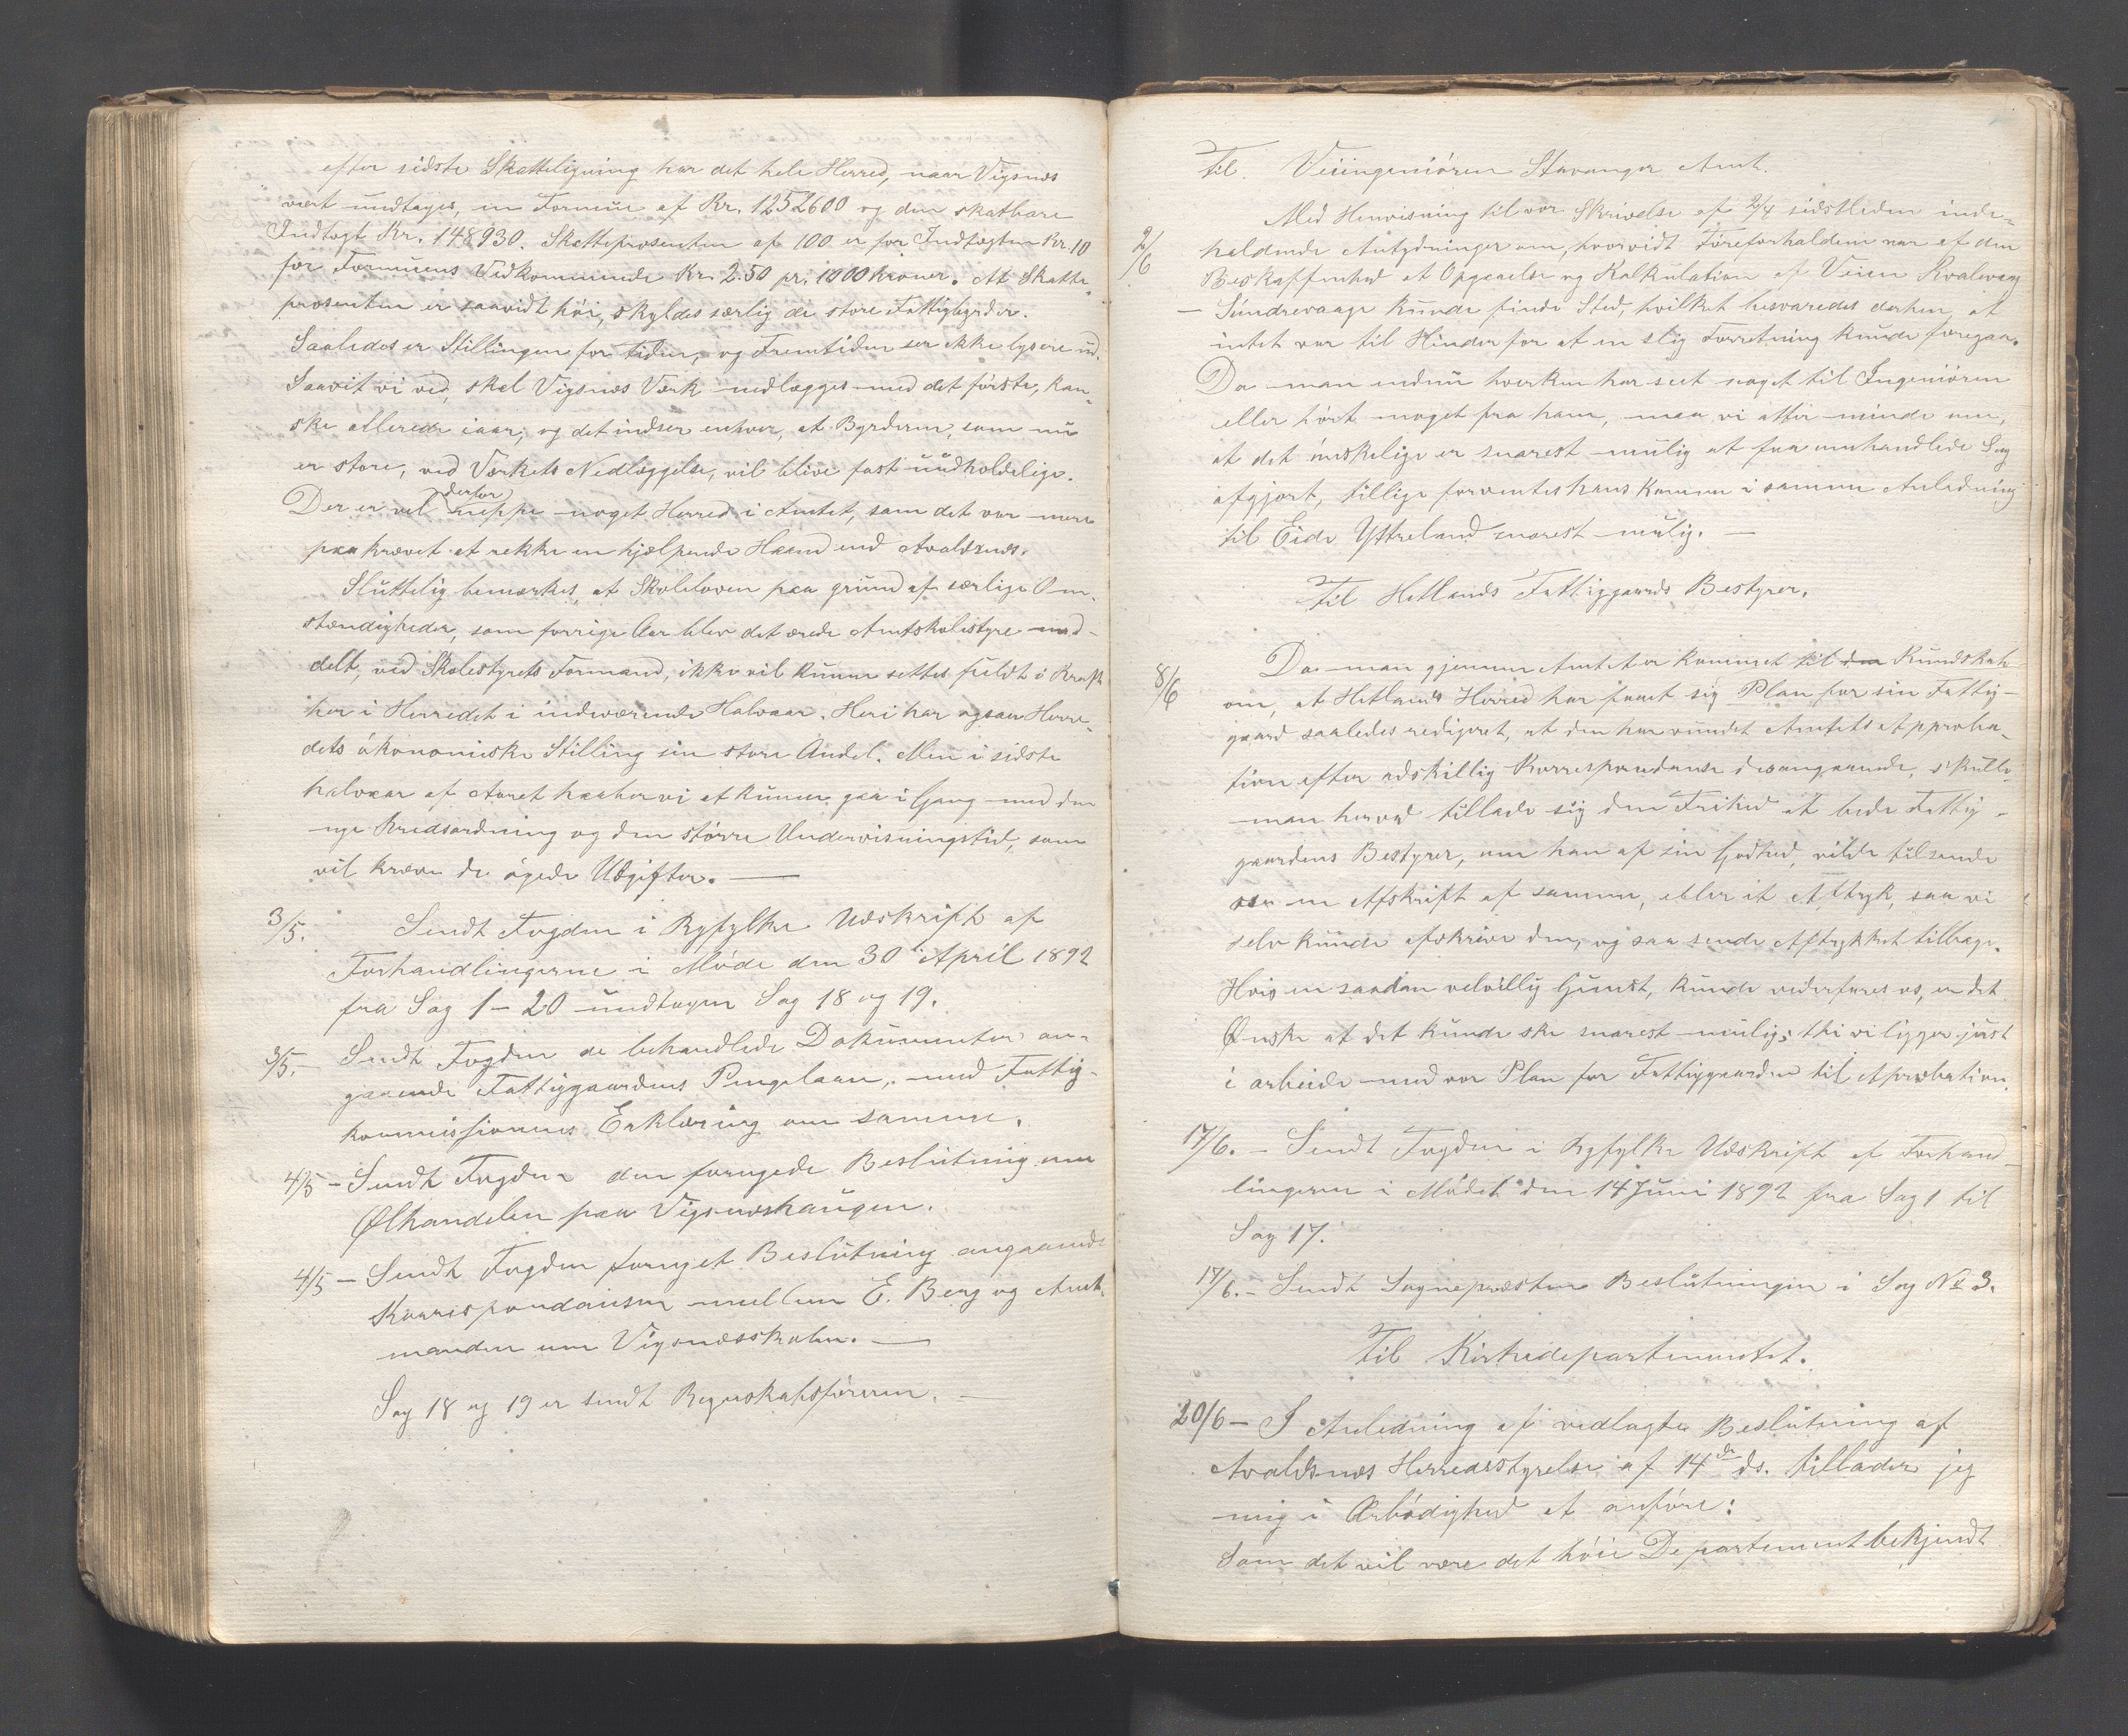 efter sidste Skatteligning har det hele Herred, naar Vigsnæs
vært undtages, en Formue af Kr. 1252600 og den skatbare
Indtægt Kr. 148930. Skatteprosenten af 100 er for Indtægten Kr. 10
for Formuens Vedkommende Kr. 2.50 pr. 1000 kroner. At Skatte-
prosenten er saavidt höi, skyldes særlig de store Fattigbyrder.
Saaledes er Stillingen for tiden, og Fremtiden ser ikke lysere ud.
Saavit vi ved, skal Vigsnæs Værk nedlægges med det förste, kan-
ske allerede iaar; og det indser enhver, at Byrderne, som nu
er store, ved Værkets Nedlæggelse, vil blive fast uudholdelige.
Der er vel derfor neppe noget Herred i Amtet, som det var mere
paakrævet at rekke en hjælpende Haand end Avaldsnæs.
Sluttelig bemærkes, at Skoleloven paa grund af særlige Om-
stændigheder, som forrige Aar blev det ærede Amtskolestyre med-
delt, ved Skolestyrets Formand, ikke vil kunne settes fuldt i Kraft
her i Herredet i indeværende Halvaar. Heri har ogsaa Herre-
dets ökonomiske Stilling sin store Andel. Men i sidste
halvaar af Aaret haaber vi at kunne gaa i Gang med den
nye Kredsordning og den större Undervisningstid, som
vil kræve de ögede Udgifter. —
3/5. Sendt Fogden i Ryfylke Udskrift af
Forhandlingerne i Möde den 30 April 1892
fra Sag 1-20 undtagen Sag 18 og 19.
3/5. — Sendt Fogden de behandlede Dokumenter an-
gaaende Fattiggaardens Pengelaan, med Fattig-
kommissionens Erklæring om samme.
4/5 — Sendt Fogden den fornyede Beslutning om
Ølhandelen paa Vigsnæshaugen.
4/5 — Sendt Fogden fornyet Beslutning angaaende
Korrespondansen mellem E. Berg og Amt-
manden om Vigsnæsskolen. —
Sag 18 og 19 er sendt Regnskabsföreren. —
Til Veiingeniören Stavanger Amt.
Med Henvisning til vor Skrivelse af 2/4 sidstleden inde-
2/6 holdende Antydninger om, hvorvidt Föreforholdene var af den
Beskaffenhed at Opgaaelse og Kalkulation af Veien Kvalevaag
— Sundrevaage kunde finde Sted, hvilket besvaredes derhen, at
intet var til Hinder for at en slig Forretning kunde foregaa.
Da man endnu hverken har seet noget til Ingeniören
eller hört noget fra ham, maa vi atter minde om,
at det önskelige er snarest mulig at faa omhandlede Sag
afgjort, tillige forventes hans Komme i samme Anledning
til Eide Yttreland snarest mulig. —
Til Hetlands Fattiggaards Bestyrer.
8/6 Da man gjennem Amtet er kommet til Kundskab
om, at Hetlands Herred har faaet sig Plan for sin Fattig-
gaard saaledes redigeret, at den har vundet Amtets Approba-
tion efter adskillig Korrespondanse desangaaende, skulle
man herved tillade sig den Frihed at bede Fattig-
gaardens Bestyrer, om han af sin Godhed, vilde tilsende
os en Afskrift af samme, eller et Aftryk, saa vi
selv kunde afskrive den, og saa sende Aftrykket tilbage.
Hvis en saadan velvillig Gunst, kunde vederfares os, er det
Ønske at det kunde ske snarest mulig; thi vi ligger just
i arbeide med vor Plan for Fattiggaarden til Aprobation.
17/6. — Sendt Fogden i Ryfylke Udskrift af Forhand-
lingerne i Mödet den 14 Juni 1892 fra Sag 1 til
Sag 17.
17/6. — Sendt Sognepresten Beslutningen i Sag № 3.
Til Kirkedepartementet.
20/6 — I Anledning af vedlagte Beslutning af
Avaldsnæs Herredsstyrelse af 14de ds. tillader jeg
mig i Ærbödighed at anföre:
Som det vil være det höie Departement bekjendt